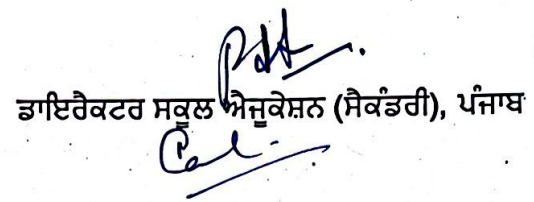 ਡਾਇਰੈਕਟਰ ਸਕੂਲ ਐਜੂਕੇਸ਼ਨ (ਸੈਕੰਡਰੀ), ਪੰਜਾਬ